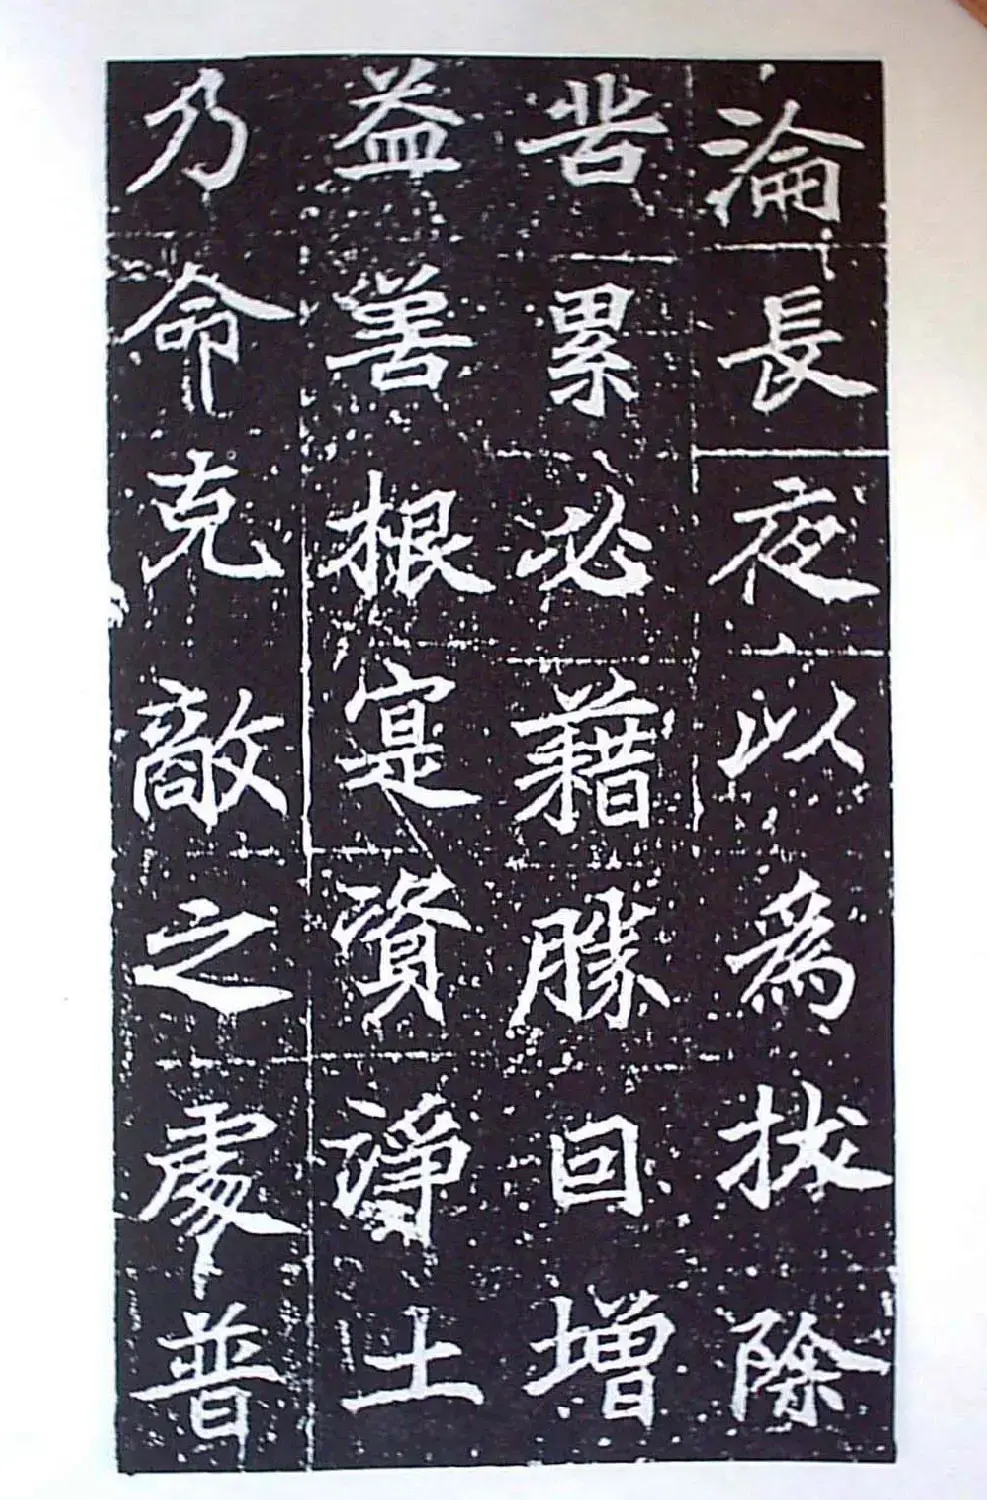 淪長夜以為拔除
苦累必藉勝因增
益善根寔資淨土
乃命克敵之處普